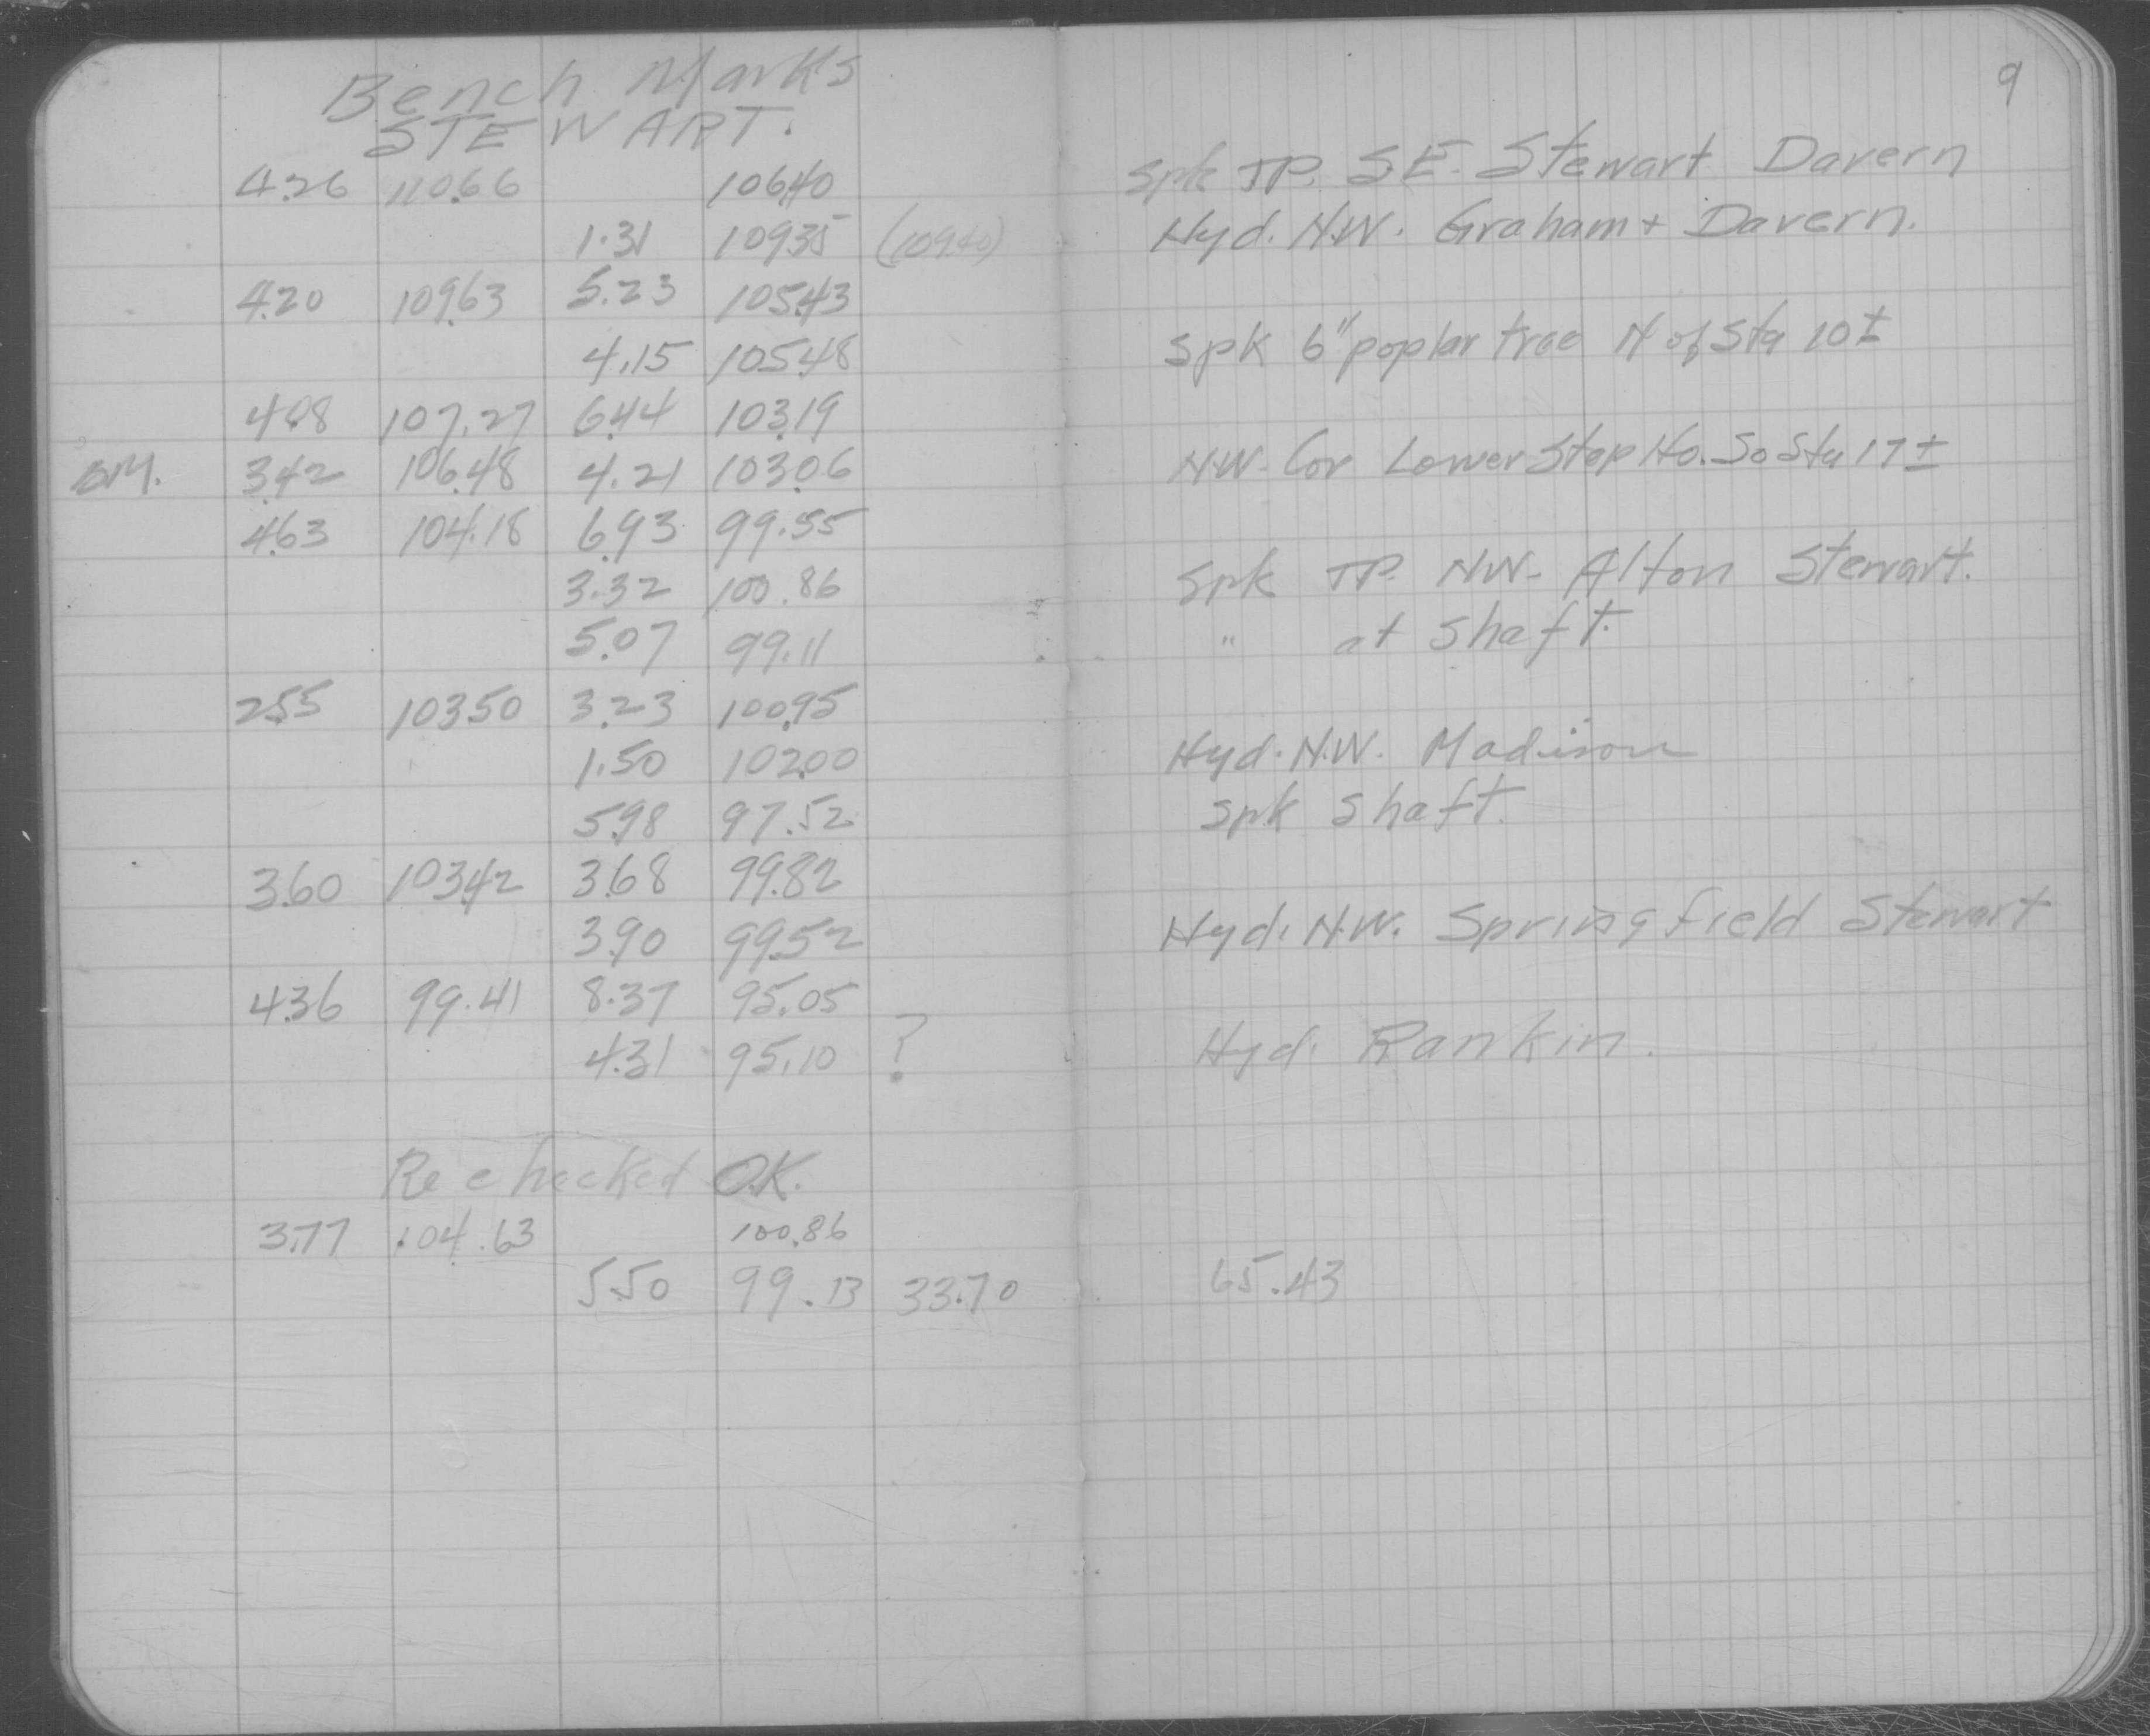 9
Bench Marks
STEWART.
4.26 110.66 106.40 Spk T.P. S.E. Stewart Davern
1.31 109.35 (109.40) Hyd. N.W. Graham + Davern.
4.20 109.63 5.23 105.43
4.15 105.48 Spk 6" poplar tree N of Sta 10±
4.08 107.27 6.44 103.19
BM. 3.42 106.48 4.21 103.06 N.W. Cor Lower Step Ho. So Sta 17±
4.63 104.18 6.93 99.55
3.32 100.86 Spk T.P. NW. Alton Stewart.
5.07 99.11 " at shaft.
2.55 103.50 3.23 100.95
1.50 102.00 Hyd. N.W. Madison
5.98 97.52 Spk shaft.
3.60 103.42 3.68 99.82
3.90 99.52 Hyd. N.W. Springfield Stewart
4.36 99.41 8.37 95.05
4.31 95.10 ? Hyd. Rankin.
Rechecked O.K.
3.77 104.63 100.86
5.50 99.13 33.70 65.43